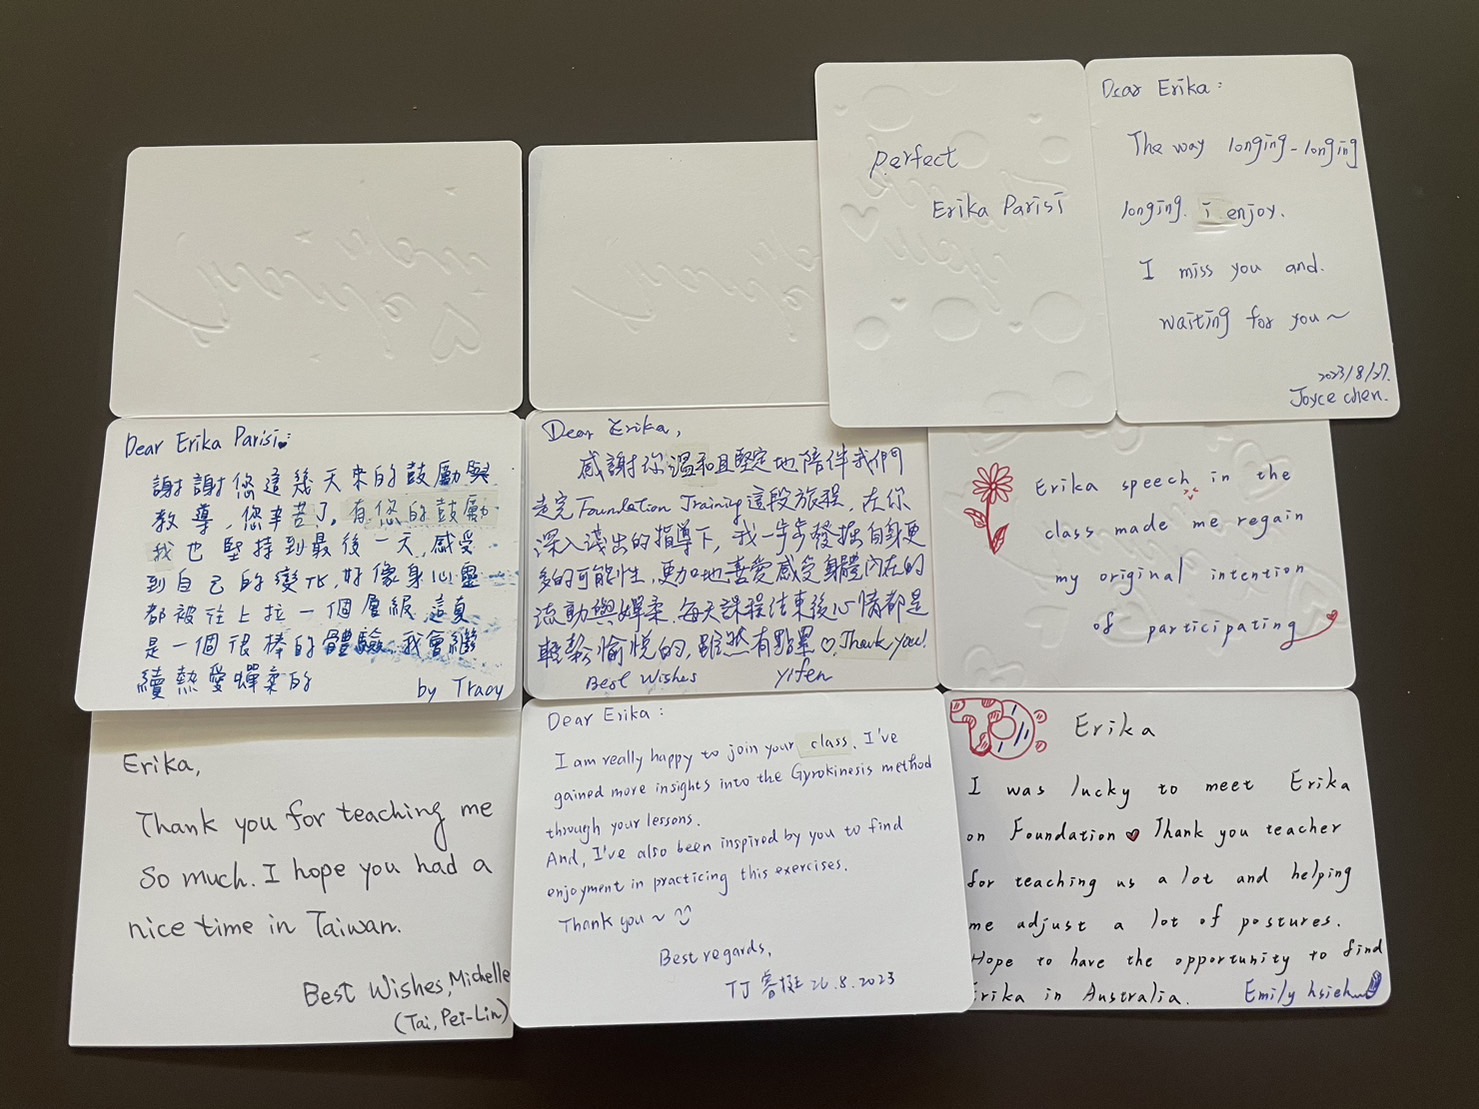 perfect
Erika Parisi
Dear Erika:
The way longing-longing
longing. i enjoy.
I miss you and.
waiting for you~
2023/8/27.
Joyce chen.
Dear Erika Parisi:
謝謝您這幾天來的鼓勵與
教導,您辛苦了。有您的鼓勵
我也堅持到最後一天,感受
到自己的變化,好像身心靈
都被往上拉一個層級,這真
是一個很棒的體驗,我會繼
續熱愛蟬柔的
by Tracy
Dear Erika,
感謝你溫和且堅定地陪伴我們
走完Foundation Training這段旅程,在你
深入淺出的指導下,我一步步發掘自身更
多的可能性,更加地喜愛感受身體內在的
流動與嬋柔,每天課程結束後心情都是
輕鬆愉悅的,雖然有點累♡,Thank you!
Best Wishes yifen
Erika speech in the
class made me regain
my original intention
of participating
Erika,
Thank you for teaching me
so much. I hope you had a
nice time in Taiwan.
Best Wishes, Michelle
(Tai, Pei-Lin)
Dear Erika:
I am really happy to join your class. I've
gained more insights into the Gyrokinesis method
through your lessons.
And, I've also been inspired by you to find
enjoyment in practicing this exercises.
Thank you~
Best regards,
TJ 26.8.2023
TO Erika
I was lucky to meet Erika
on Foundation♥ Thank you teacher
for teaching us a lot and helping
me adjust a lot of postures.
Hope to have the opportunity to find
Erika in Australia. Emily hsieh